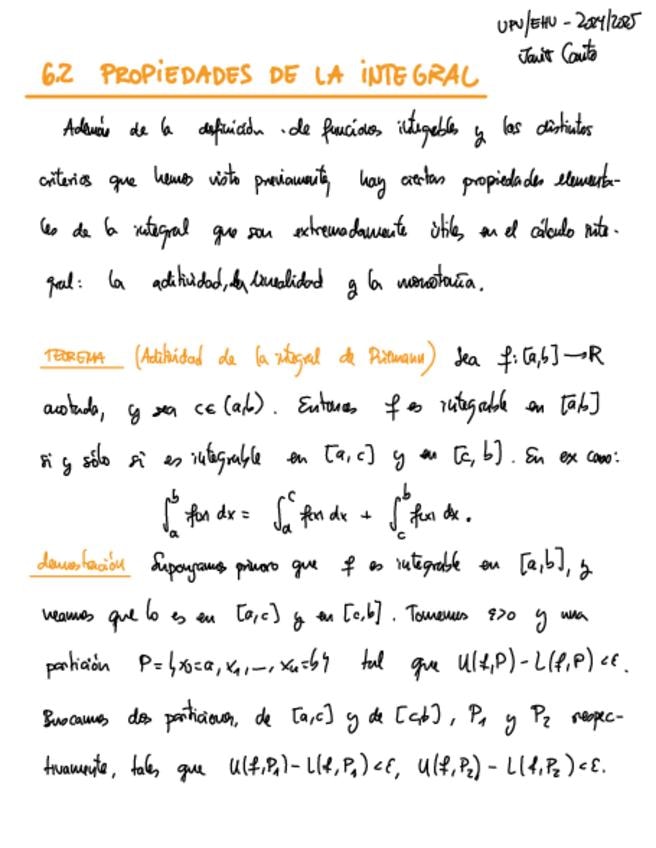 UPV/EHU - 2024/2025
Javier Canto
6.2 PROPIEDADES DE LA INTEGRAL
Además de la definición de funciones integrables y los distintos
criterios que hemos visto previamente, hay ciertas propiedades elementa-
les de la integral que son extremadamente útiles en el cálculo inte-
gral: la aditividad, la linealidad y la monotonía.
TEOREMA (Aditividad de la integral de Riemann) Sea f: [a,b] → R
acotada, y sea c ∈ (a,b). Entonces f es integrable en [a,b]
si y sólo si es integrable en [a,c] y en [c,b]. En ese caso:
∫_a^b f(x) dx = ∫_a^c f(x) dx + ∫_c^b f(x) dx.
demostración Supongamos primero que f es integrable en [a,b], y
veamos que lo es en [a,c] y en [c,b]. Tomemos ε>0 y una
partición P = {x₀=a, x₁, ..., xₙ=b} tal que U(f,P) - L(f,P) < ε.
Buscamos dos particiones, de [a,c] y de [c,b], P₁ y P₂ respec-
tivamente, tales que U(f,P₁) - L(f,P₁) < ε, U(f,P₂) - L(f,P₂) < ε.